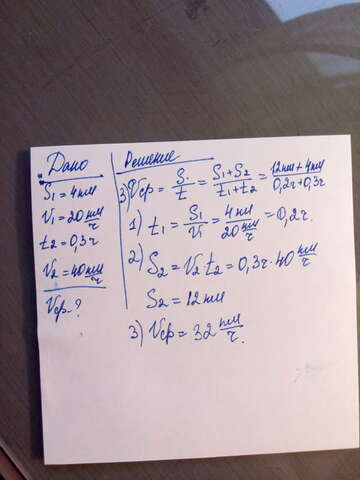 Дано
S₁ = 4 км
V₁ = 20 км/ч
t₂ = 0,3 ч
V₂ = 40 км/ч
Vср - ?
Решение
3) Vср = S/t = (S₁ + S₂)/(t₁ + t₂) = (12 км + 4 км)/(0,2 ч + 0,3 ч)
1) t₁ = S₁/V₁ = 4 км/20 км/ч = 0,2 ч.
2) S₂ = V₂ t₂ = 0,3 ч · 40 км/ч
S₂ = 12 км
3) Vср = 32 км/ч.